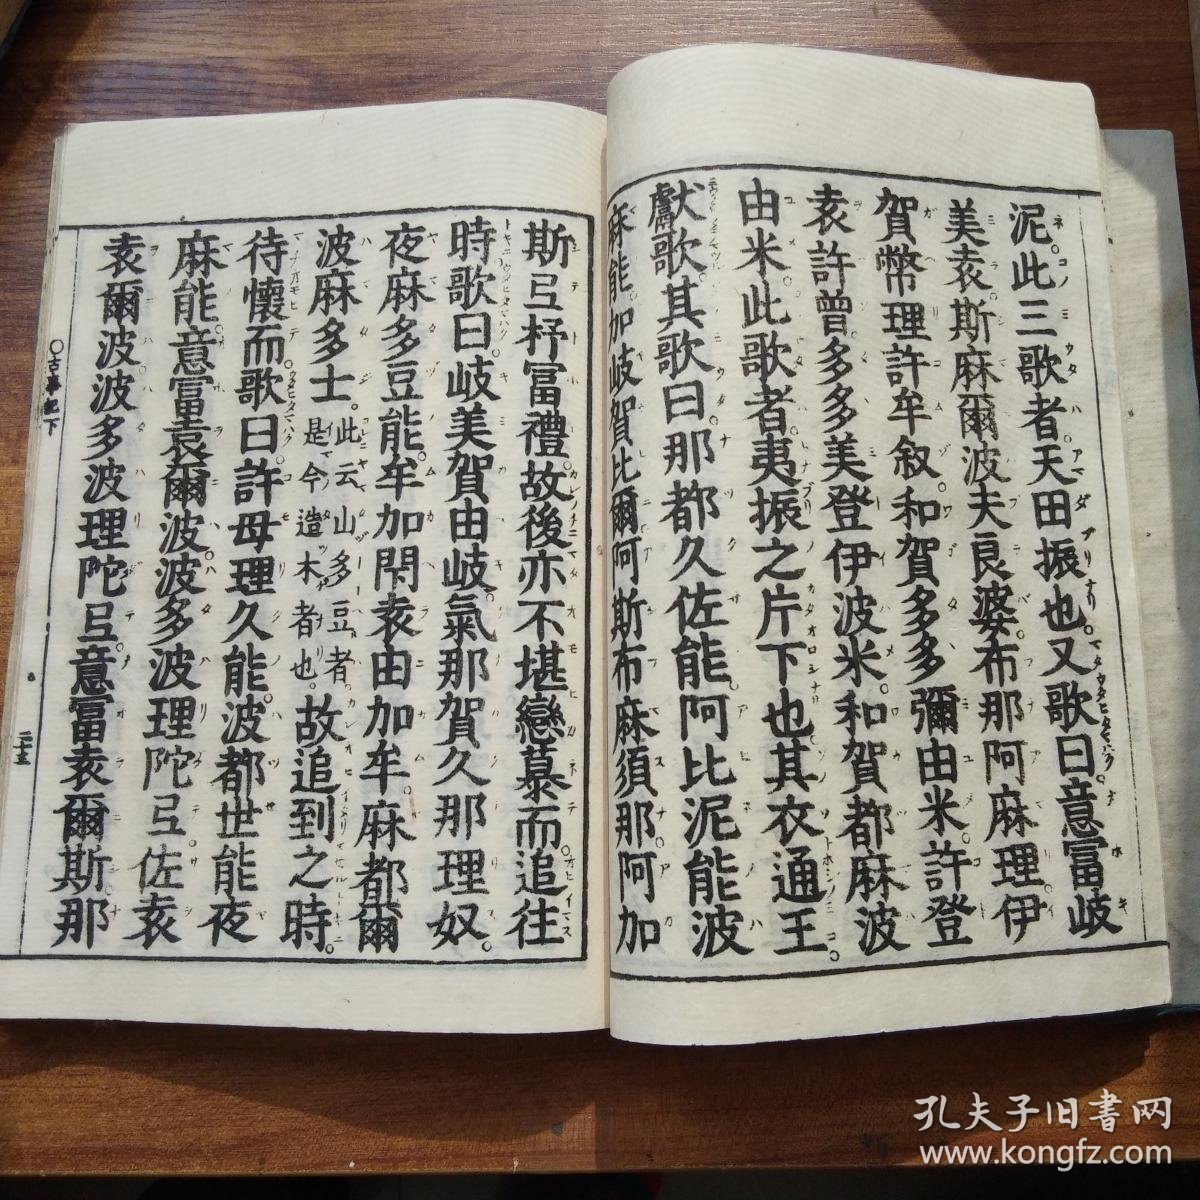 泥此三歌者天田振也又歌曰意富岐
美袁斯麻爾波夫良婆布那阿麻理伊
賀幣理許牟叙和賀多多彌由米許登
袁許曾多多美登伊波米和賀都麻波
由米此歌者夷振之片下也其衣通王
獻歌其歌曰那都久佐能阿比泥能波
麻能加岐賀比爾阿斯布麻須那阿加
斯弖杼富禮故後亦不堪戀慕而追往
時歌曰岐美賀由岐氣那賀久那理奴
夜麻多豆能牟加閇袁由加牟麻都爾
波麻多士此云山多豆者是今造木者也故追到之時
待懷而歌曰許母理久能波都世能夜
麻能意富袁爾波波多波理陀弖佐袁
袁爾波波多波理陀弖意富袁爾斯那
〇古事記下
二十五
孔夫子旧书网
www.kongfz.com